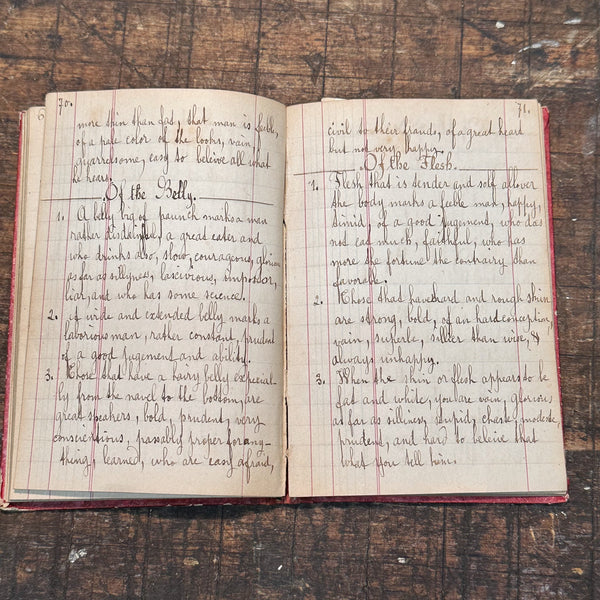 70.
more thin than fat, that man is feeble,
of a pale color of the looks, vain,
quarrelsome, easy to beleive all what
he hears.
Of the Belly.
1. A belly big of paunch marks a man
rather disdainful, a great eater and
who drinks also, slow, courageous, glorious
as far as sillyness, lascivious, impostor,
liar, and who has some science.
2. a wide and extended belly marks a
laborious man, rather constant, prudent
of a good jugement and ability.
3. Those that have a hairy belly especial-
ly from the navel to the bottom, are
great speakers, bold, prudent, very
conscientious, passably proper for any-
thing, learned, who are easy afraid,
71.
civil to their friends, of a great heart
but not very happy.
Of the Flesh.
1. Flesh that is tender and soft all over
the body marks a feeble man, happy,
timid, of a good jugement, who does
not eat much, faithful, who has
more the fortune the contrary than
favorable.
2. Those that have hard and rough skin
are strong, bold, of an hard conception,
vain, superbe, sillier than wise, &
always unhappy.
3. When the skin or flesh appears to be
fat and white, you are vain, glorious
as far as silliness, stupid, chaste, modeste,
prudens, and hard to beleive that
what you tell him.